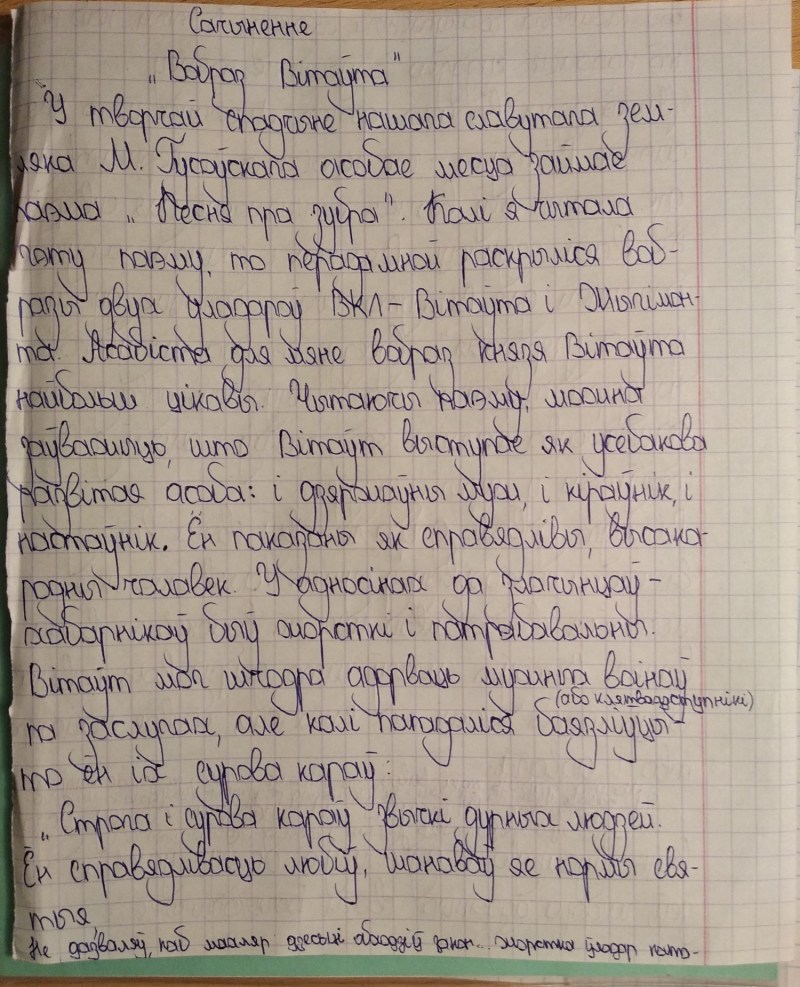 Сачыненне
„Вобраз Вітаўта"
У творчай спадчыне нашага славутага зем-
ляка М. Гусоўскага асобае месца займае
паэма „Песня пра зубра". Калі я чытала
гэту паэму, то перада мной раскрыліся воб-
разы двух уладароў ВКЛ – Вітаўта і Жыгімон-
та. Асабіста для мяне вобраз князя Вітаўта
найбольш цікавы. Чытаючы паэму, можна
заўважыць, што Вітаўт выступае як усебакова
развітая асоба: і дзяржаўны муж, і кіраўнік, і
настаўнік. Ён паказаны як справядлівы, высака-
родны чалавек. У адносінах да злачынцаў-
хабарнікаў быў жорсткі і патрабавальны.
Вітаўт мог шчодра адорваць мужных воінаў
(або клятваадступнікі)
па заслугах, але калі пападаліся баязліўцы-
то ён іх сурова караў:
„Строга і сурова караў звычкі дурных людзей.
Ён справядлівасць любіў, шанаваў яе нормы свя-
тыя,
Не дазваляў, каб махляр дзесьці абходзіў закон... жорстка ўладар пата-